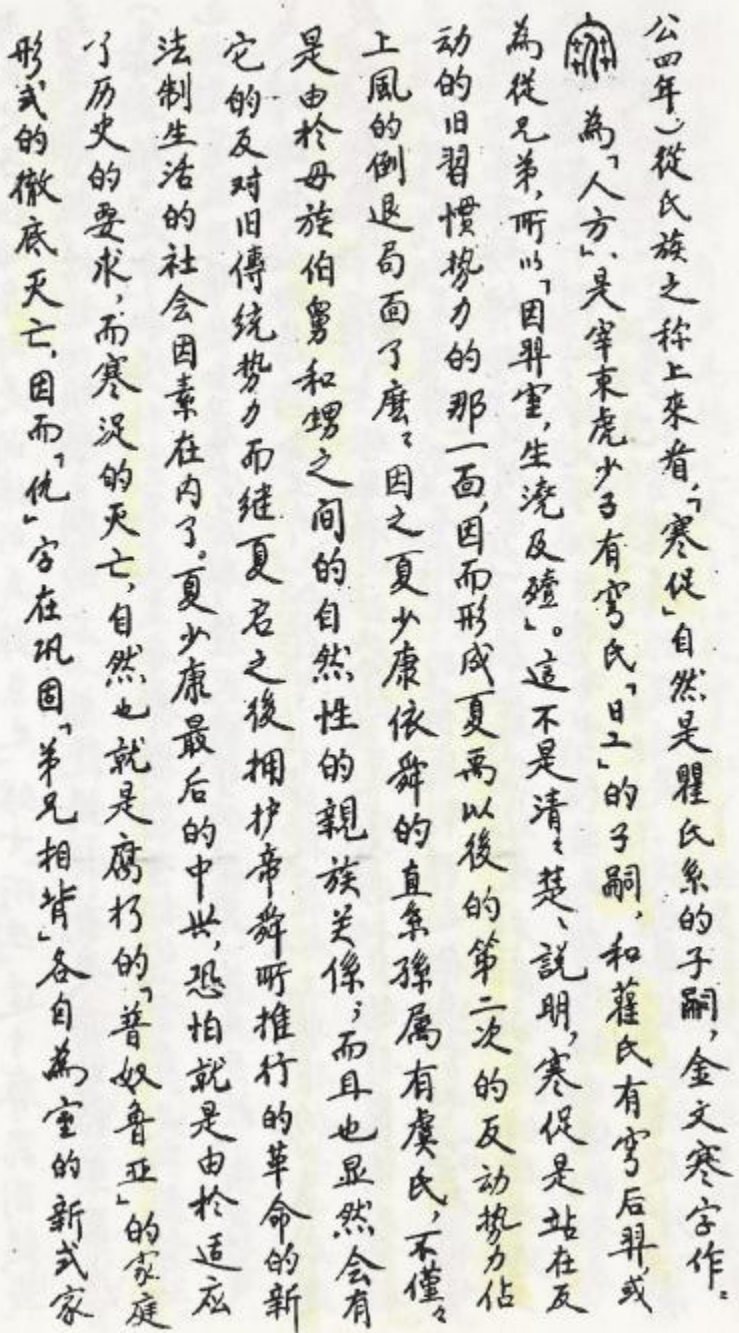 公四年）從氏族之称上來看，「寒促」自然是瞿氏系的子嗣，金文寒字作：
為「人方」、是宰東虎少子有窮氏「日工」的子嗣，和藿氏有穹后羿，或
為從兄弟，所以「因羿室，生澆及殪」。這不是清〻楚〻説明，寒促是站在反
动的旧習慣势力的那一面，因而形成夏禹以後的第二次的反动势力佔
上風的倒退局面了麽？因之夏少康依舜的直系孫属有虞氏，不僅〻
是由於母族伯舅和甥之间的自然性的親族关係；而且也显然会有
它的反对旧傳统势力而继夏君之後拥护帝舜所推行的革命的新
法制生活的社会因素在内了。夏少康最后的中兴，恐怕就是由於适应
了历史的要求，而寒浞的灭亡，自然也就是腐朽的「普奴鲁亚」的家庭
形式的徹底灭亡，因而「仇」字在巩固「弟兄相背」各自為室的新式家